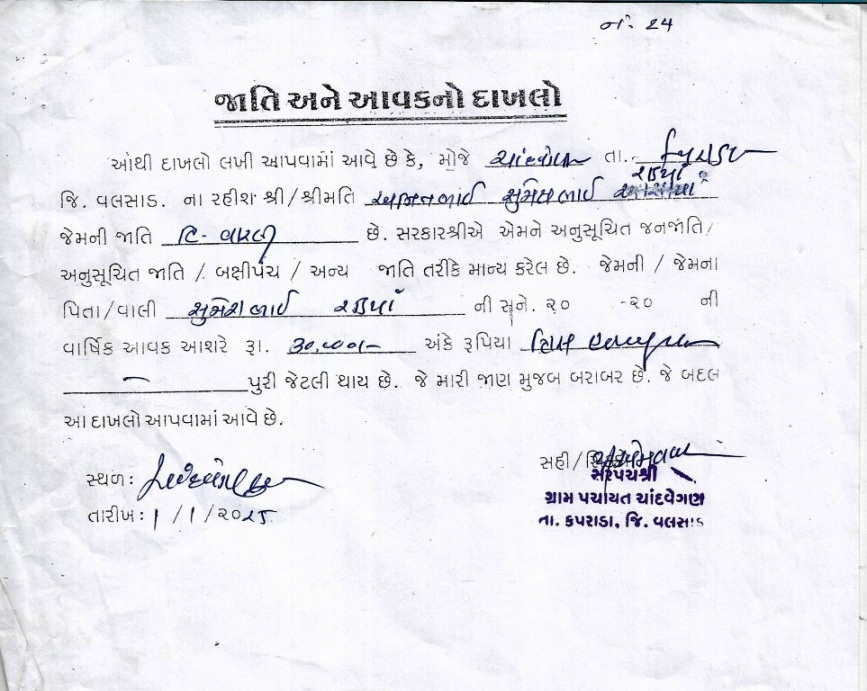 નં. 24
જાતિ અને આવકનો દાખલો
આથી દાખલો લખી આપવામાં આવે છે કે, મોજે તા.
જિ. વલસાડ. ના રહીશ શ્રી/શ્રીમતિ સુમેશભાઈ રડયાં
જેમની જાતિ હિ. વારલી છે. સરકારશ્રીએ એમને અનુસૂચિત જનજાતિ/
અનુસૂચિત જાતિ / બક્ષીપંચ / અન્ય જાતિ તરીકે માન્ય કરેલ છે. જેમની / જેમના
પિતા/વાલી સુમેશભાઈ રડયાં ની સને. ૨૦ -૨૦ ની
વાર્ષિક આવક આશરે રૂા. 30,000/- અંકે રૂપિયા ત્રિસ હજાર પુરા
પુરી જેટલી થાય છે. જે મારી જાણ મુજબ બરાબર છે. જે બદલ
આ દાખલો આપવામાં આવે છે.
સ્થળ:
તારીખ: ૧/૧/૨૦૨૫
સહી/
સરપંચશ્રી
ગ્રામ પંચાયત ચાંદવેગણ
તા. કપરાડા, જિ. વલસાડ